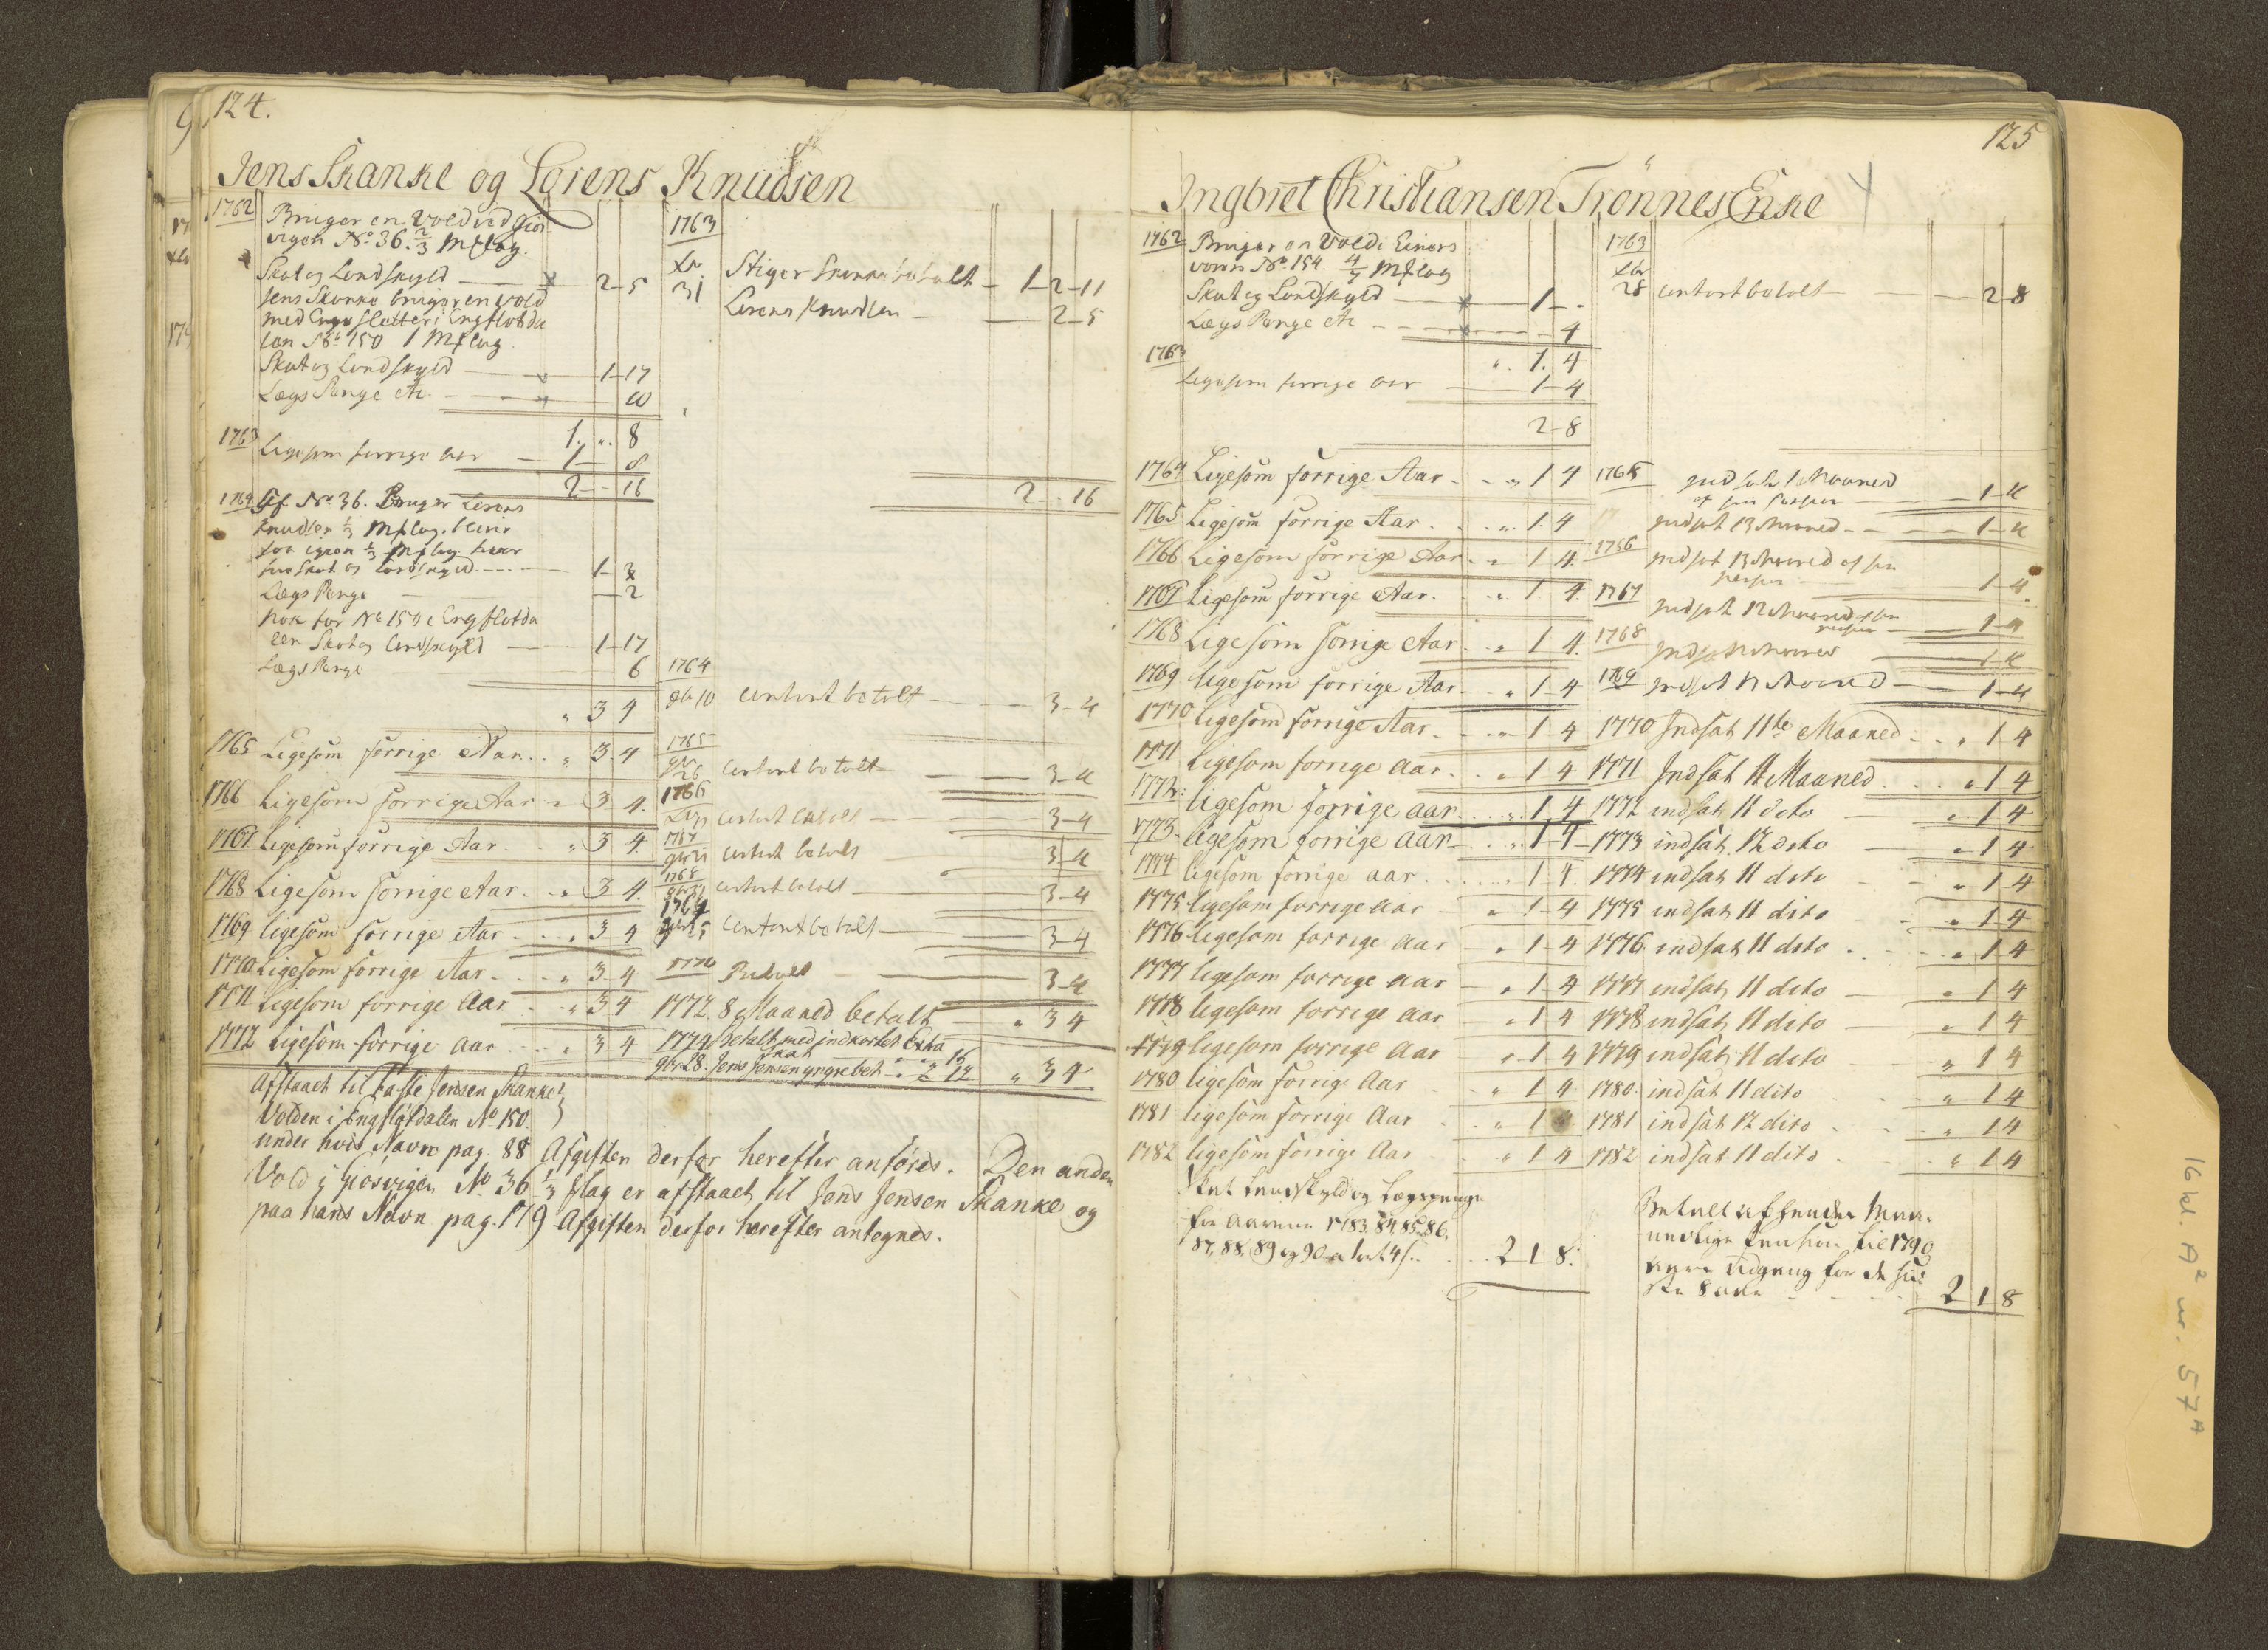 124.
Jens Skanke og Lorens Knudsen
1762 Bruger en Vold ved Giös
vigen No 36. 2/3 Mslag.
Skat og Landskyld — 2-5
Jens Skanke bruger en Vold
med Enge sletter i Engflotda
len No 150 1 Mslag
Skat og Landskyld — 1-17
Lægs Penge etc. — 10
1. „ 8
1763 Ligesom forrige aar — 1-8
2-16
1764 Af No 36. Bruger Lorens
Knudsen 1/3 Mslag.
Skat og Landskyld — 1-3
Lægs Penge — 2
Nok for No 150 i Engflotda
len Skat og Landskyld — 1-17
Lægs Penge 6
„ 3 4
1765 Ligesom forrige Aar . . „ 3 4
1766 Ligesom forrige Aar „ 3 4.
1767 Ligesom forrige Aar . . „ 3 4.
1768 Ligesom forrige Aar . . „ 3 4.
1769 ligesom forrige Aar . . „ 3 4
1770 Ligesom forrige Aar . . „ 3 4
1771 Ligesom forrige Aar . . „ 3 4
1772 ligesom forrige Aar . . „ 3 4
1763
31 Stiger Skanke betalt — 1-2-11
Lorens Knudsen — 2-5
2 - 16
1764
10 contant betalt — 3-4
1765
26 contant betalt — 3-4
1766
contant betalt — 3-4
1767
contant betalt — 3-4
1768
contant betalt — 3-4
1769
contant betalt — 3-4
1770 Betalt — 3-4
1772. 8 Maaned betalt — „ 3 4
1774 Betalt med indkortet Extra
Skat „ „ 16
28. Jens Jensen yngre bet — „ 2 12 „ 3 4
Afstaaet til Faste Jensen Skanke
Volden i Engflotdalen No 150.
under hvis Navn pag. 88 Afgiften derfor herefter anföres. Den anden
Vold i Giösvigen No 36 1/3 slag er afstaaet til Jens Jensen Skanke og
paa hans Navn pag. 179 Afgiften derfor herefter antegnes.
125
Ingbret Christiansen Trönnes Enke
1762 Bruger en Vold i Einers
voren No 154. 4/7 Mslag
Skat og Landskyld — 1 - -
Lægs Penge etc — 4
„ 1. 4
1763
Ligesom forrige aar — 1-4
2-8
1764 Ligesom forrige Aar . . „ 1 4
1765 Ligesom forrige Aar . . „ 1. 4
1766 Ligesom forrige Aar . „ 1 4.
1767 Ligesom forrige Aar . . „ 1. 4.
1768 Ligesom forrige Aar . „ 1 4.
1769 ligesom forrige Aar . „ 1-4
1770 ligesom forrige Aar . . „ 1 4
1771 Ligesom forrige Aar . . „ 1 4
1772. ligesom forrige aar . . „ 1 4
1773. ligesom forrige aar . . „ 1-4
1774 ligesom forrige aar . . . „ 1-4.
1775 ligesom forrige aar „ 1-4
1776 ligesom forrige aar „ 1 4
1777 ligesom forrige aar „ 1 4
1778 ligesom forrige aar „ 1 4
1779 ligesom forrige Aar „ 1 4
1780 ligesom forrige Aar „ 1 4
1781 ligesom forrige Aar „ 1
1782 ligesom forrige Aar „ 1 4
Skat Landskyld og Lægspenge
for Aarene 1783, 84, 85, 86,
87, 88, 89 og 90 a 1 ort 4 s. . . 2 1 8.
1763
28 contant betalt — 2-8
1765 indsat 1 Maaned
af sin Pension — 1-4
indsat 13 Maaned — 1-4
1766 indsat 13 Maaned af sin
Pension — 1-4.
1767 indsat 12 Maaned af sin
Pension — 1-4
1768 indsat Maaned 1-4
1769 indsat Maaned — 1-4
1770 Indsat 11te Maaned . . „ 1 4
1771 Indsat 11 Maaned . . „ 1 4
1772 indsat 11 dito „ 1 4
1773 indsat 12 dito „ 1 4
1774 indsat 11 dito „ 1 4
1775 indsat 11 dito „ 1 4
1776. indsat 11 dito . „ 1 4
1777 indsat 11 dito „ 1 4
1778 indsat 11 dito „ 1 4
1779 indsat 11 dito „ 1 4
1780. indsat 11 dito „ 1 4
1781 indsat 12 dito „ 1 4
1782 indsat 11 dito „ 1 4
Betalt af hendes Maa-
nedlige Pension til 1790
Aars Udgang for de sid-
ste 8 Aar — 2 1 8
16 kl. A2 nr. 57A